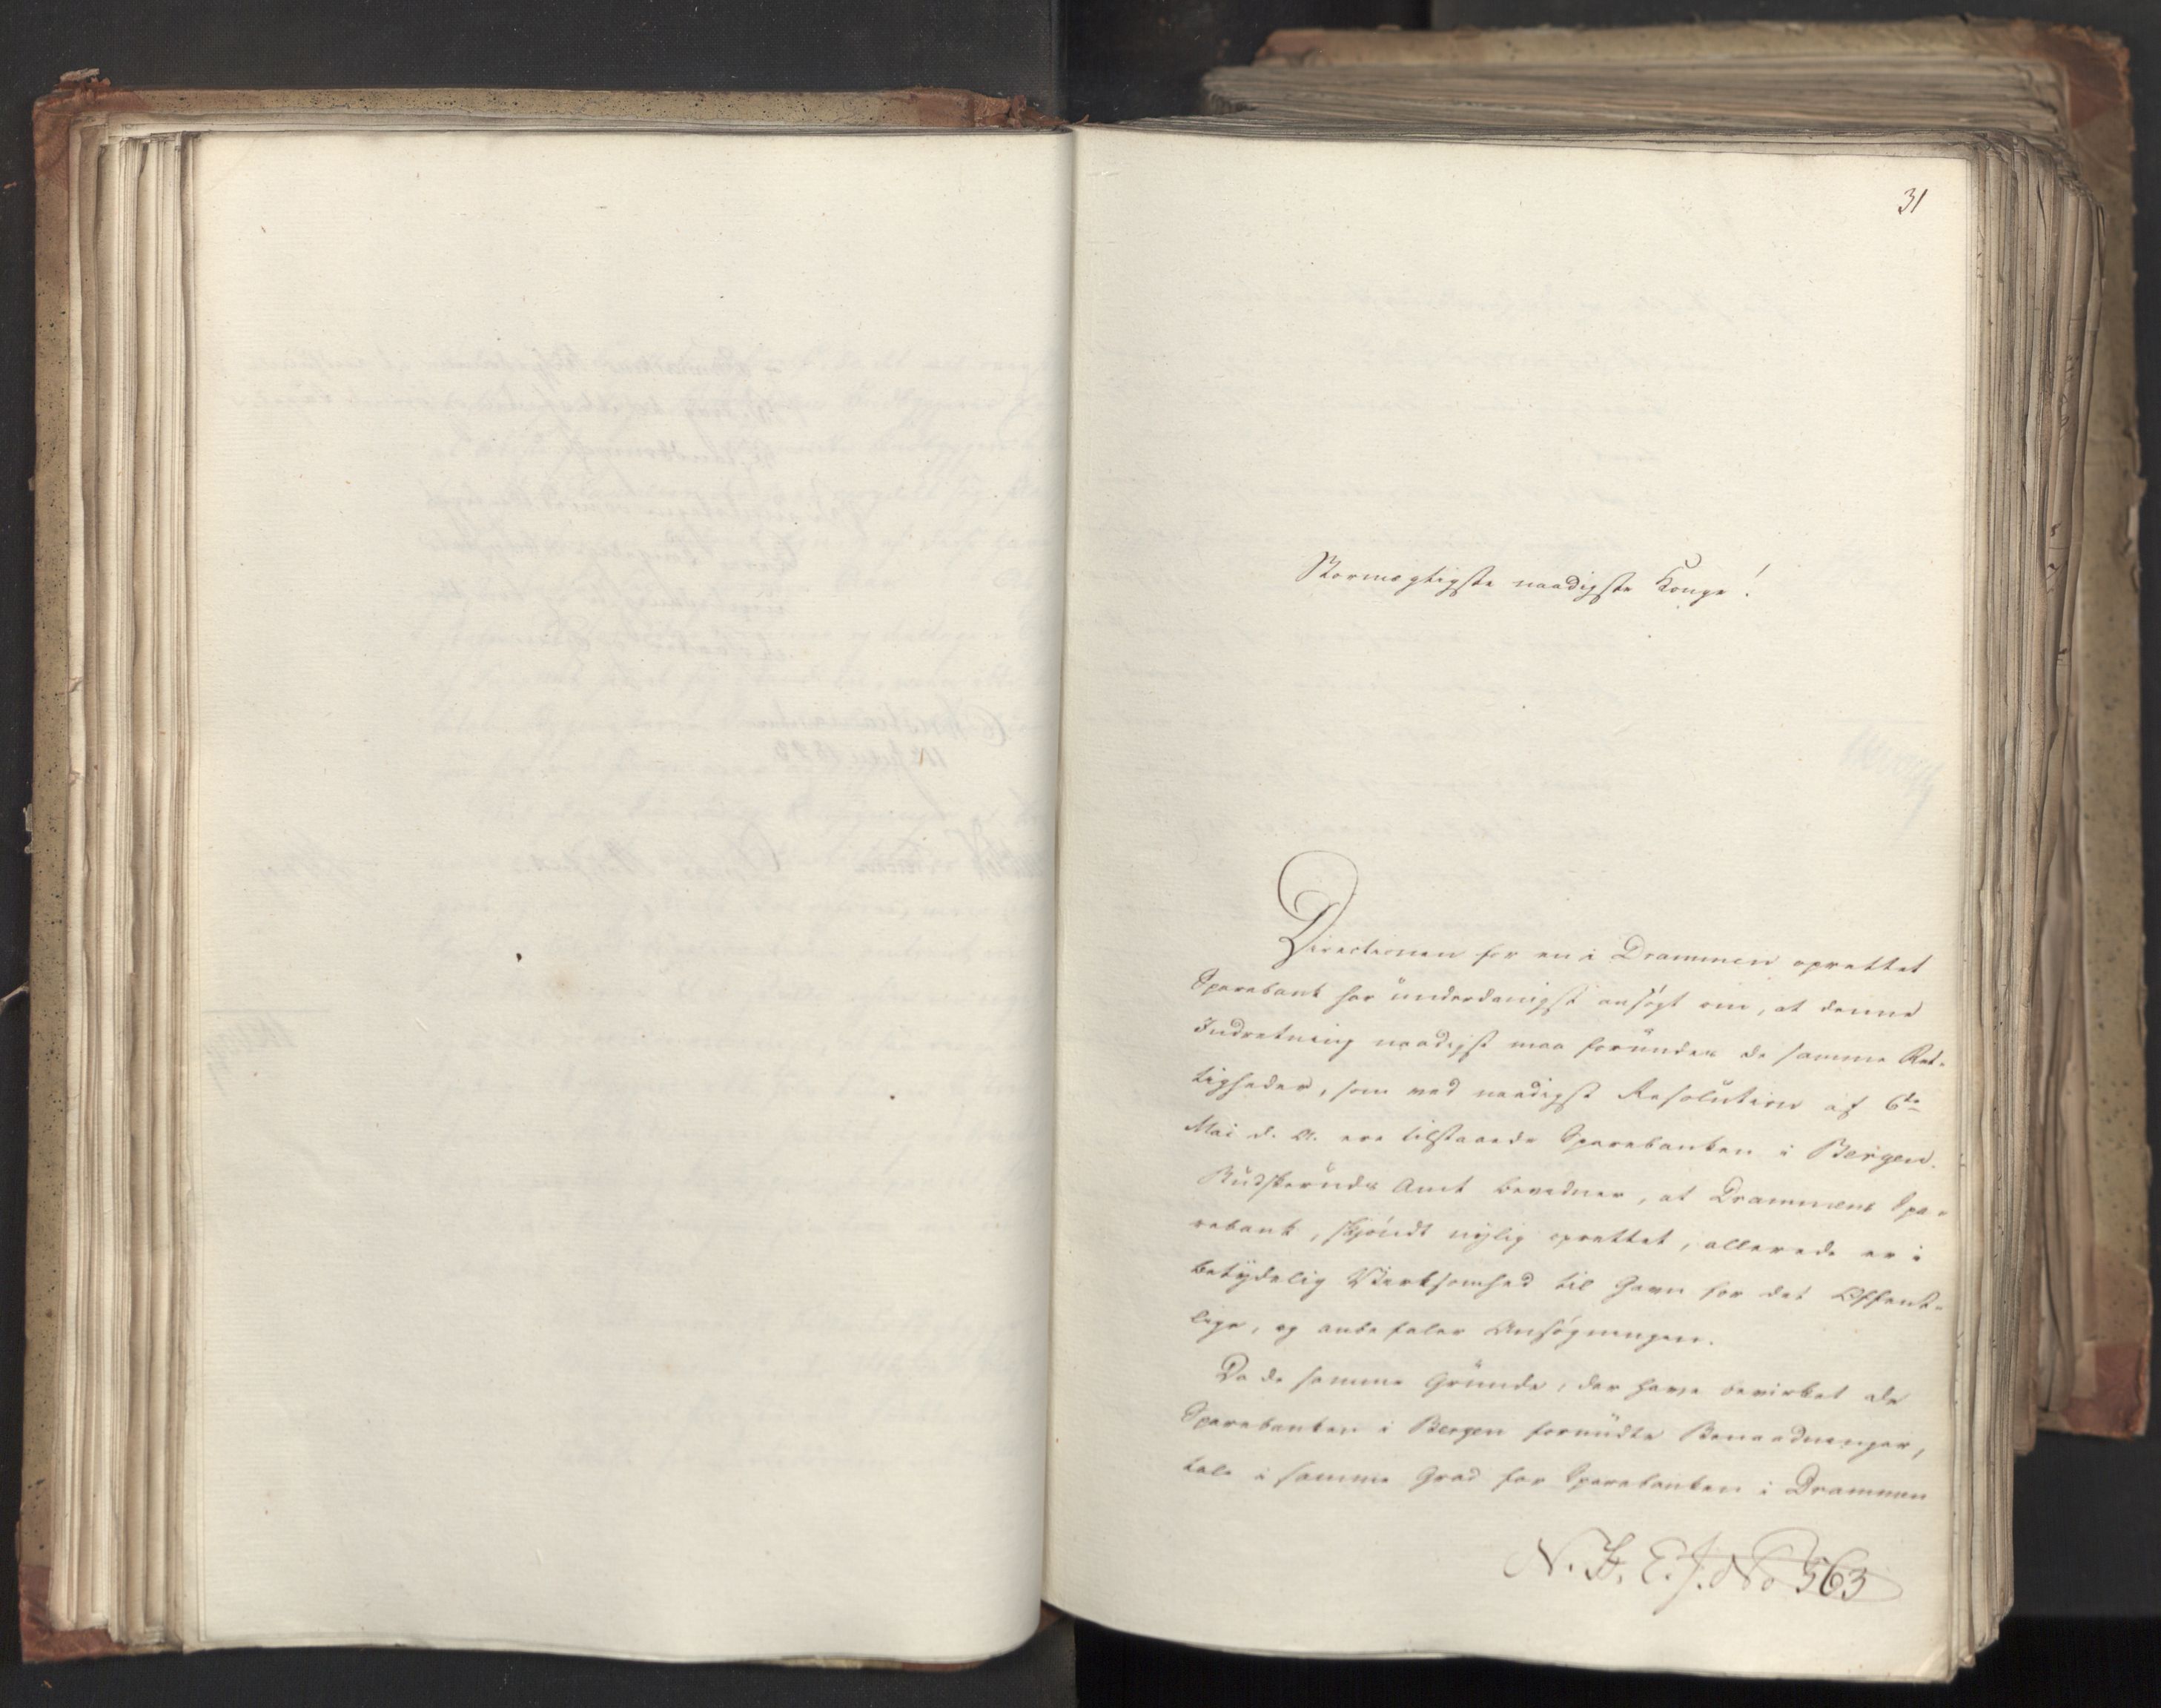 31
Stormægtigste naadigste Konge!
Directionen for en i Drammen oprettet
Sparebank har underdanigst ansøgt om, at denne
Indretning naadigst maa forundes de samme Ret-
tigheder, som ved naadigst Resolution af 6te
Mai d. A. ere tilstaaede Sparebanken i Bergen.
Budskeruds Amt bevidner, at Drammens Spa-
rebank, skjöndt nylig oprettet, allerede er i
betydelig Virksomhed til Gavn for det Offent-
lige, og anbefaler Ansøgningen.
Da de samme Grunde, der have bevirket de
Sparebanken i Bergen forundte Benaadninger,
tale i samme Grad for Sparebanken i Drammen
N. St. E. J. No 563